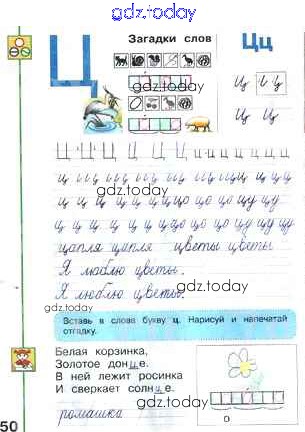 gdz.today
Загадки слов
Ц
Цц
gdz.today
Ц Ц Ц Ц Ц
gdz.today
цапля цапля цветы цветы
Я люблю цветы.
Я люблю цветы.
gdz.today
gdz.today
Вставь в слова букву ц. Нарисуй и напечатай
отгадку.
Белая корзинка,
Золотое донце.
В ней лежит росинка
И сверкает солнце.
gdz.today
50
ромашка
О